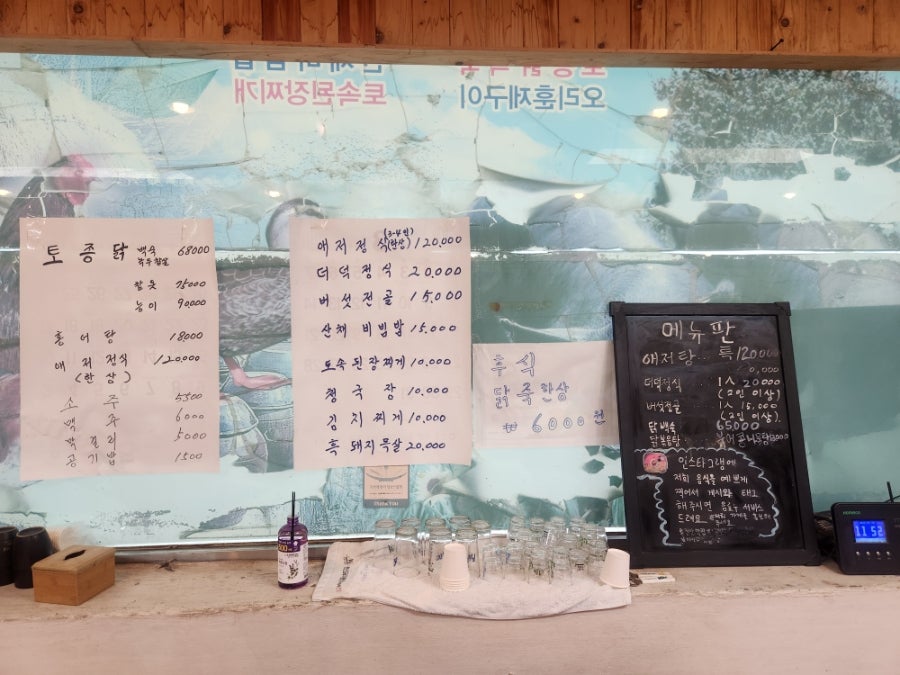 토속된장찌개
오리훈제구이
토종닭 백숙 68000
참옻 75000
능이 90,000
홍어탕 18000
애저정식 120,000
(한상)
소주 5500
맥주 6000
막걸리 5000
공기밥 1500
(3-4인)
애저정식(한상) 120,000
더덕정식 20,000
버섯전골 15,000
산채 비빔밥 15,000
토속된장찌게 10,000
청국장 10,000
김치찌게 10,000
흑돼지목살 20,000
후식
닭죽한상
₩ 6000원
메뉴판
애저탕 특 120,000
더덕정식 1人 20000
(2인 이상)
버섯전골 1人 15,000
(2인 이상)
닭백숙 65,000
닭볶음탕
인스타그램에
저희 음식을 예쁘게
찍어서 게시와 태그
해주시면 음료수 서비스
드려요
11 52